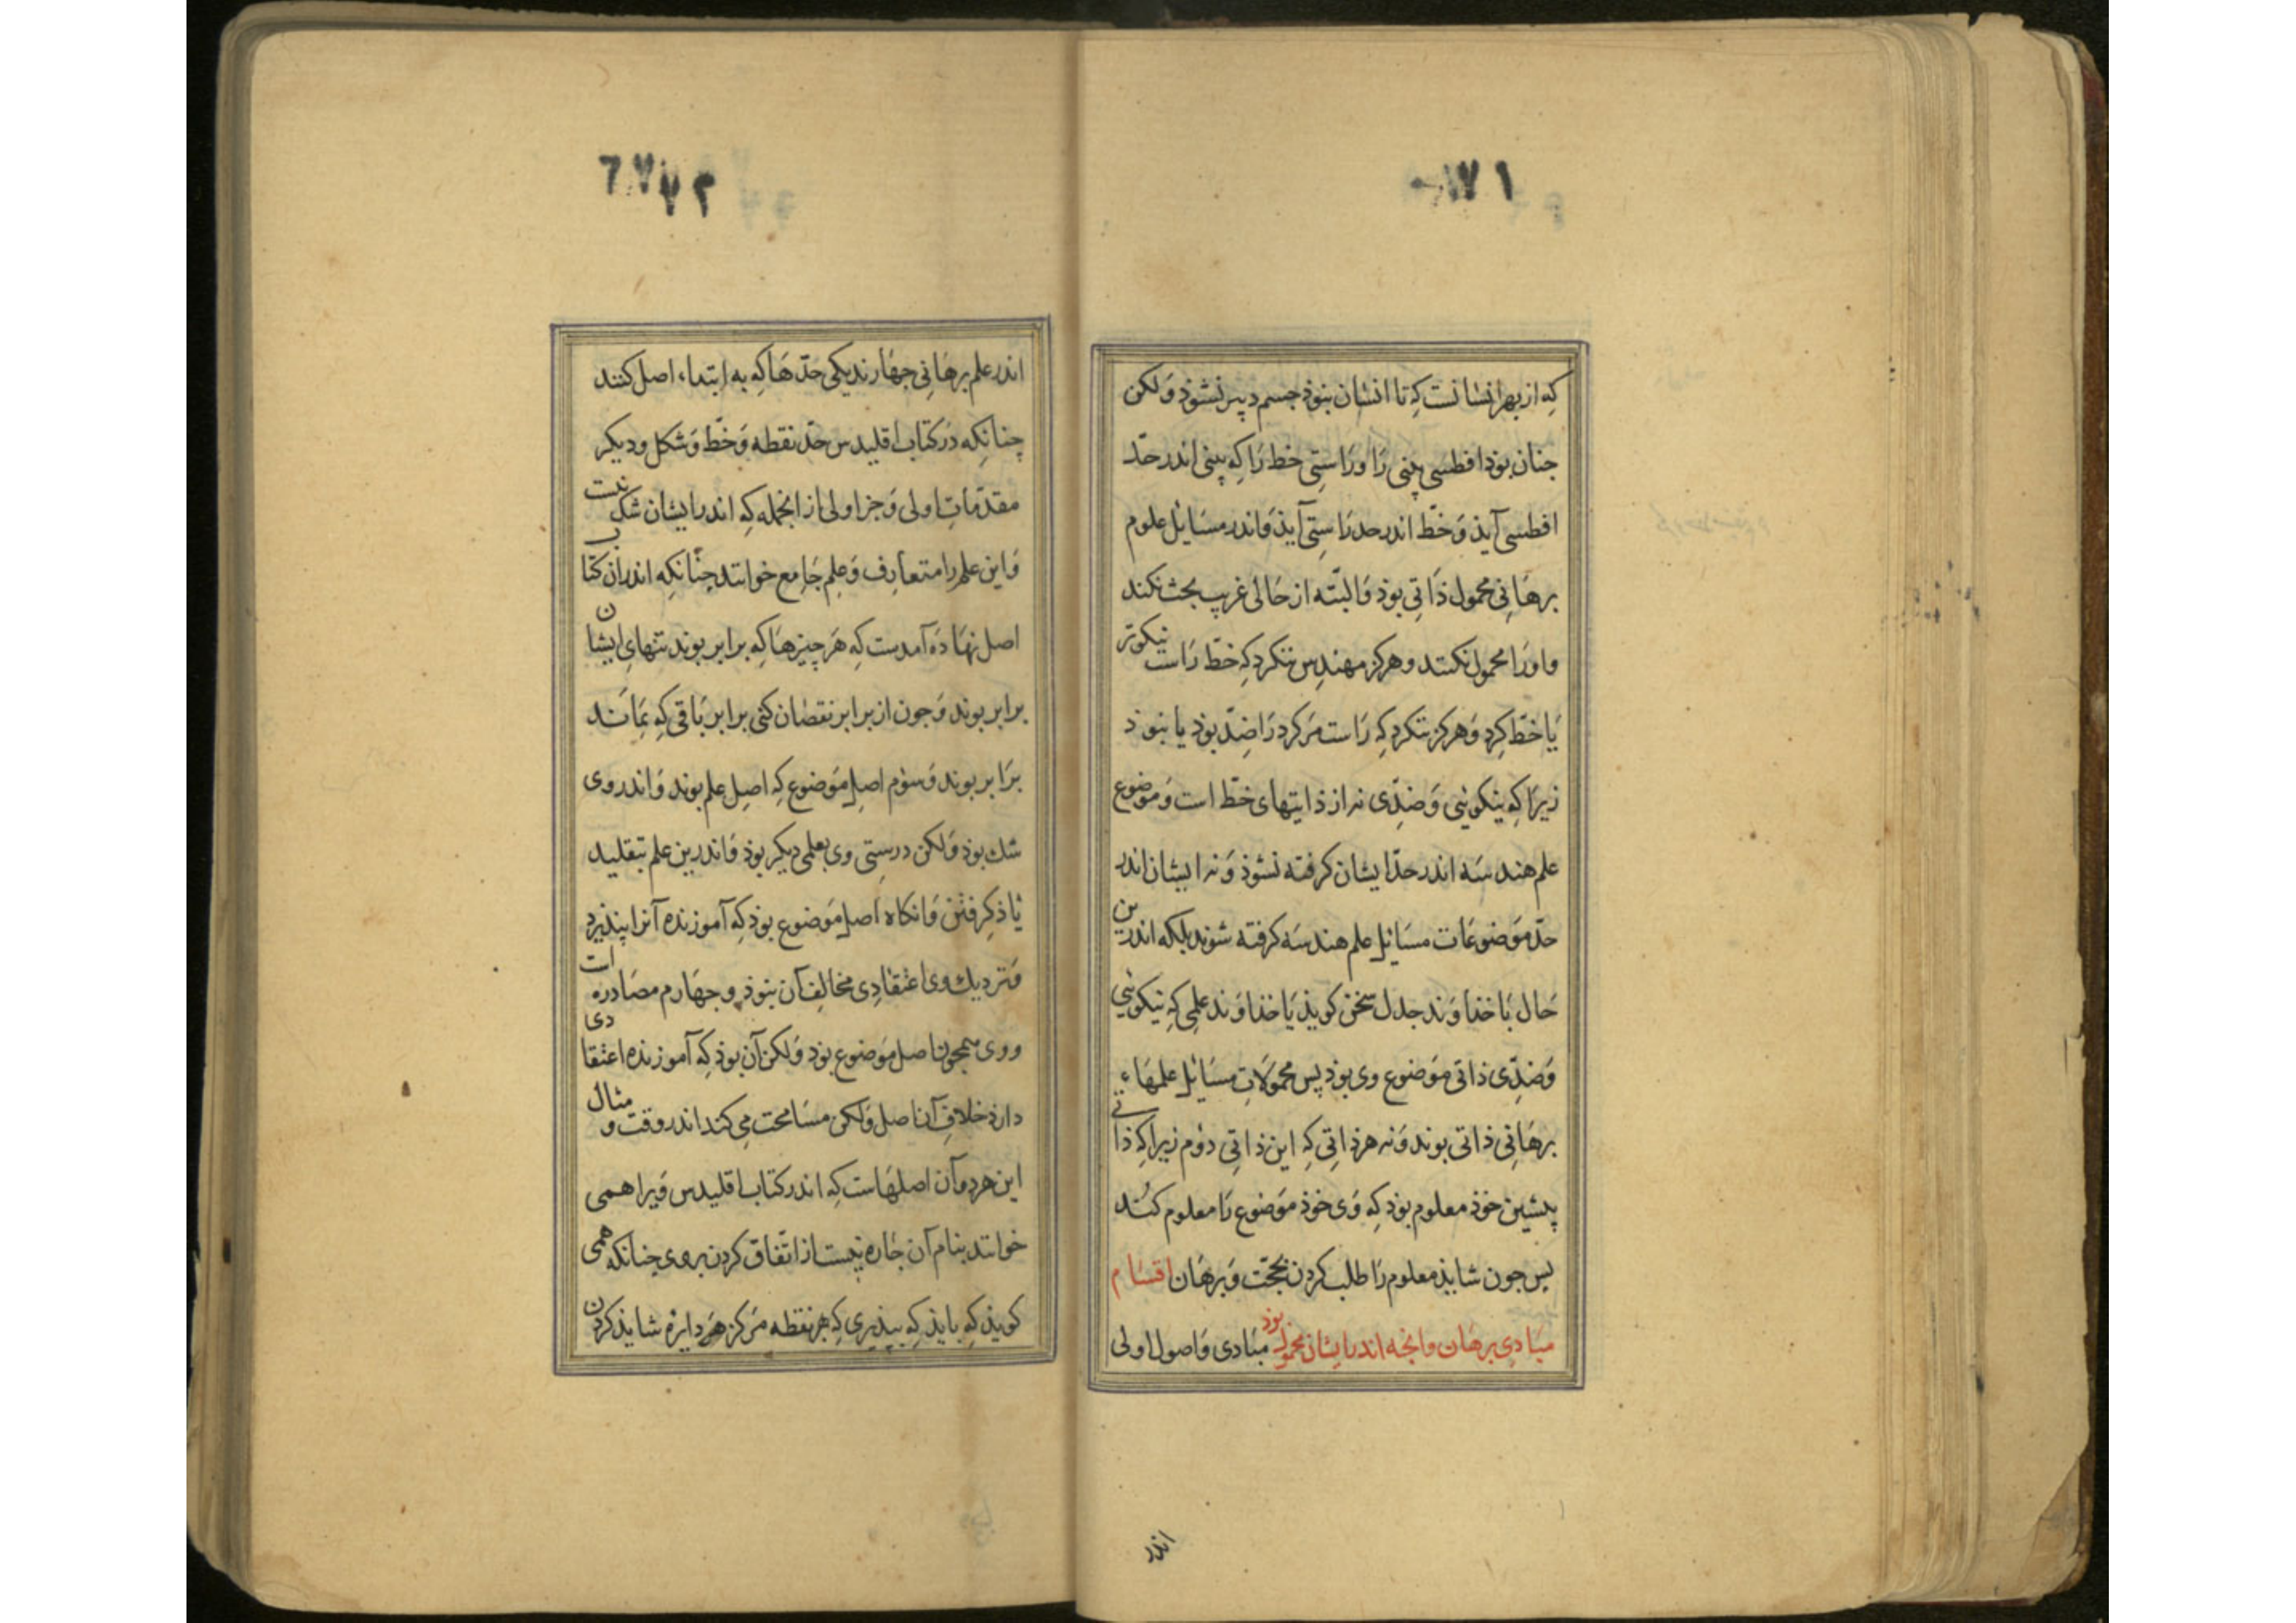 ٧١
که از بهر انسانست که تا انسان بنوذ جسم دبیر نشوذ وَلکن
جنان بوذ افطسی بینی رَا ورَاستِی خط رَا که بینی اندر حدّ
افطسی آیذ وَ خطّ اندر حد رَاستِی آیذ وَاندر مسَایل علوم
برهَانِی محمول ذَاتِی بوذ وَالبتّه از حَالی غریب بحث نکند
واورَا محمول نکند وهرکز مهندِس ننکرد که خطّ رَاست نیکوتر
یَا خطّ کِرد وَهرکز ننکرد که رَاست مَر کرد رَا ضِدّ بوذ یا بنوذ
زیرَا که نیکوئیی وَضدِّی نه از ذایتهای خطّ است وَموضوع
علم هندسَه اندر حدّ ایشان کرفته نشوذ وَنه ایشان اندر
حدّ مَوضوعَات مسَائل علم هندسَه کرفته شوند بلکه اندرین
حَال بَا خذاوَند جدل سخن کویذ یَا خذاوَند علمِی که نیکوئیی
وَضدِّی ذاتی مَوضوع وی بوذ پس محمولَاتِ مسَائل علمهَاء
برهَانِی ذاتی بوند وَنه هر ذاتِی که این ذاتِی دوُم زیرَا که ذاتی
پیشین خوذ معلوم بوذ که وَی خوذ مَوضوع رَا معلوم کُند
پس جون شایذ معلوم رَا طلب کردن بحجّت وَبرهَان اقسَام
مبَادِی برهَان وانجه اندر ایشان محمول بوذ مبَادی وَاصول اولی
اندر
٦٧ ٧٢
اندر علم برهَانِی جهَارند یکی حدّهَا که به ابتداء اصل کنند
چنانکه دَر کتاب اقلیدس حدّ نقطه وَخطّ وَشکل ودیکر
مقدّمَاتِ اولی وَجز اولی از انجمله که اندر ایشان شک نیست
وَاین علم را متعارِف وَعِلم جَامِع خوانند چنانکه اندران کتاب
اصل نهَادَه آمدست که هَر چیزهَا که برابر بوند تنهایِ ایشان
برابر بوند وَجون از برابر نقصان کنی برابر بَاقی که بمَانند
برَابر بوند وَسوُم اصلِ مَوضوع که اصِل علم بوند وَاندر وی
شك بوذ وَلکن درستِی وی بعلمی دیکر بوذ وَاندرین علم بتقلید
بَاذ کِرفتن وَانکاه اصلِ مَوضوع بوذ که آموزنده آنرا بپذیرد
وَنزدیك وی اعتقادِی مخالِف آن بنوذ وجهَارم مصَادرات
ووی همچون اصل مَوضوع بوذ وَلکن آن بوذ که آموزنده اعتقادی
دارذ خلافِ آن اصل وَلکن مسَامحت می کند اندر وقت ومثال
این هردو آن اصلهَاست که اندر کتاب اقلیدس وَیرا همی
خوانند بنام آن جَاره نیست از اتّفاق کردن بروی جنانکه همی
کویذ که بایذ که بپذیری که هر نقطه مَرکز هَر دایرَه شایذ کردن